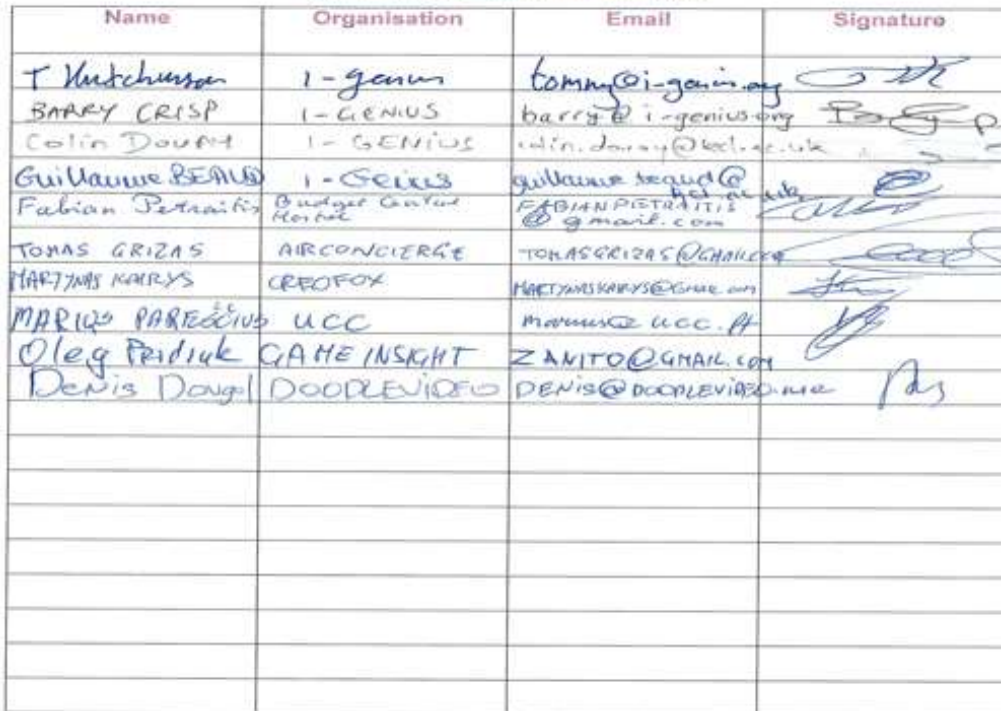 Name Organisation Email Signature
T Hutchinson 1-genius tommy@i-genius.org
BARRY CRISP 1-GENIUS barry@i-genius.org
Colin 1-GENIUS
Guillaume 1-Genius guillaume
Fabian Petraitis Budget Central FABIANPETRAITIS
Hostel @gmail.com
TOMAS GRIZAS AIRCONCIERGE TOMASGRIZAS@GMAIL.COM
MARTYNAS KAIRYS CREOFOX MARTYNASKAIRYS@GMAIL.COM
MARIUS UCC
Oleg Pridiuk GAME INSIGHT ZANITO@GMAIL.COM
Denis Dougl DOODLEVIDEO DENIS@DOODLEVIDEO.